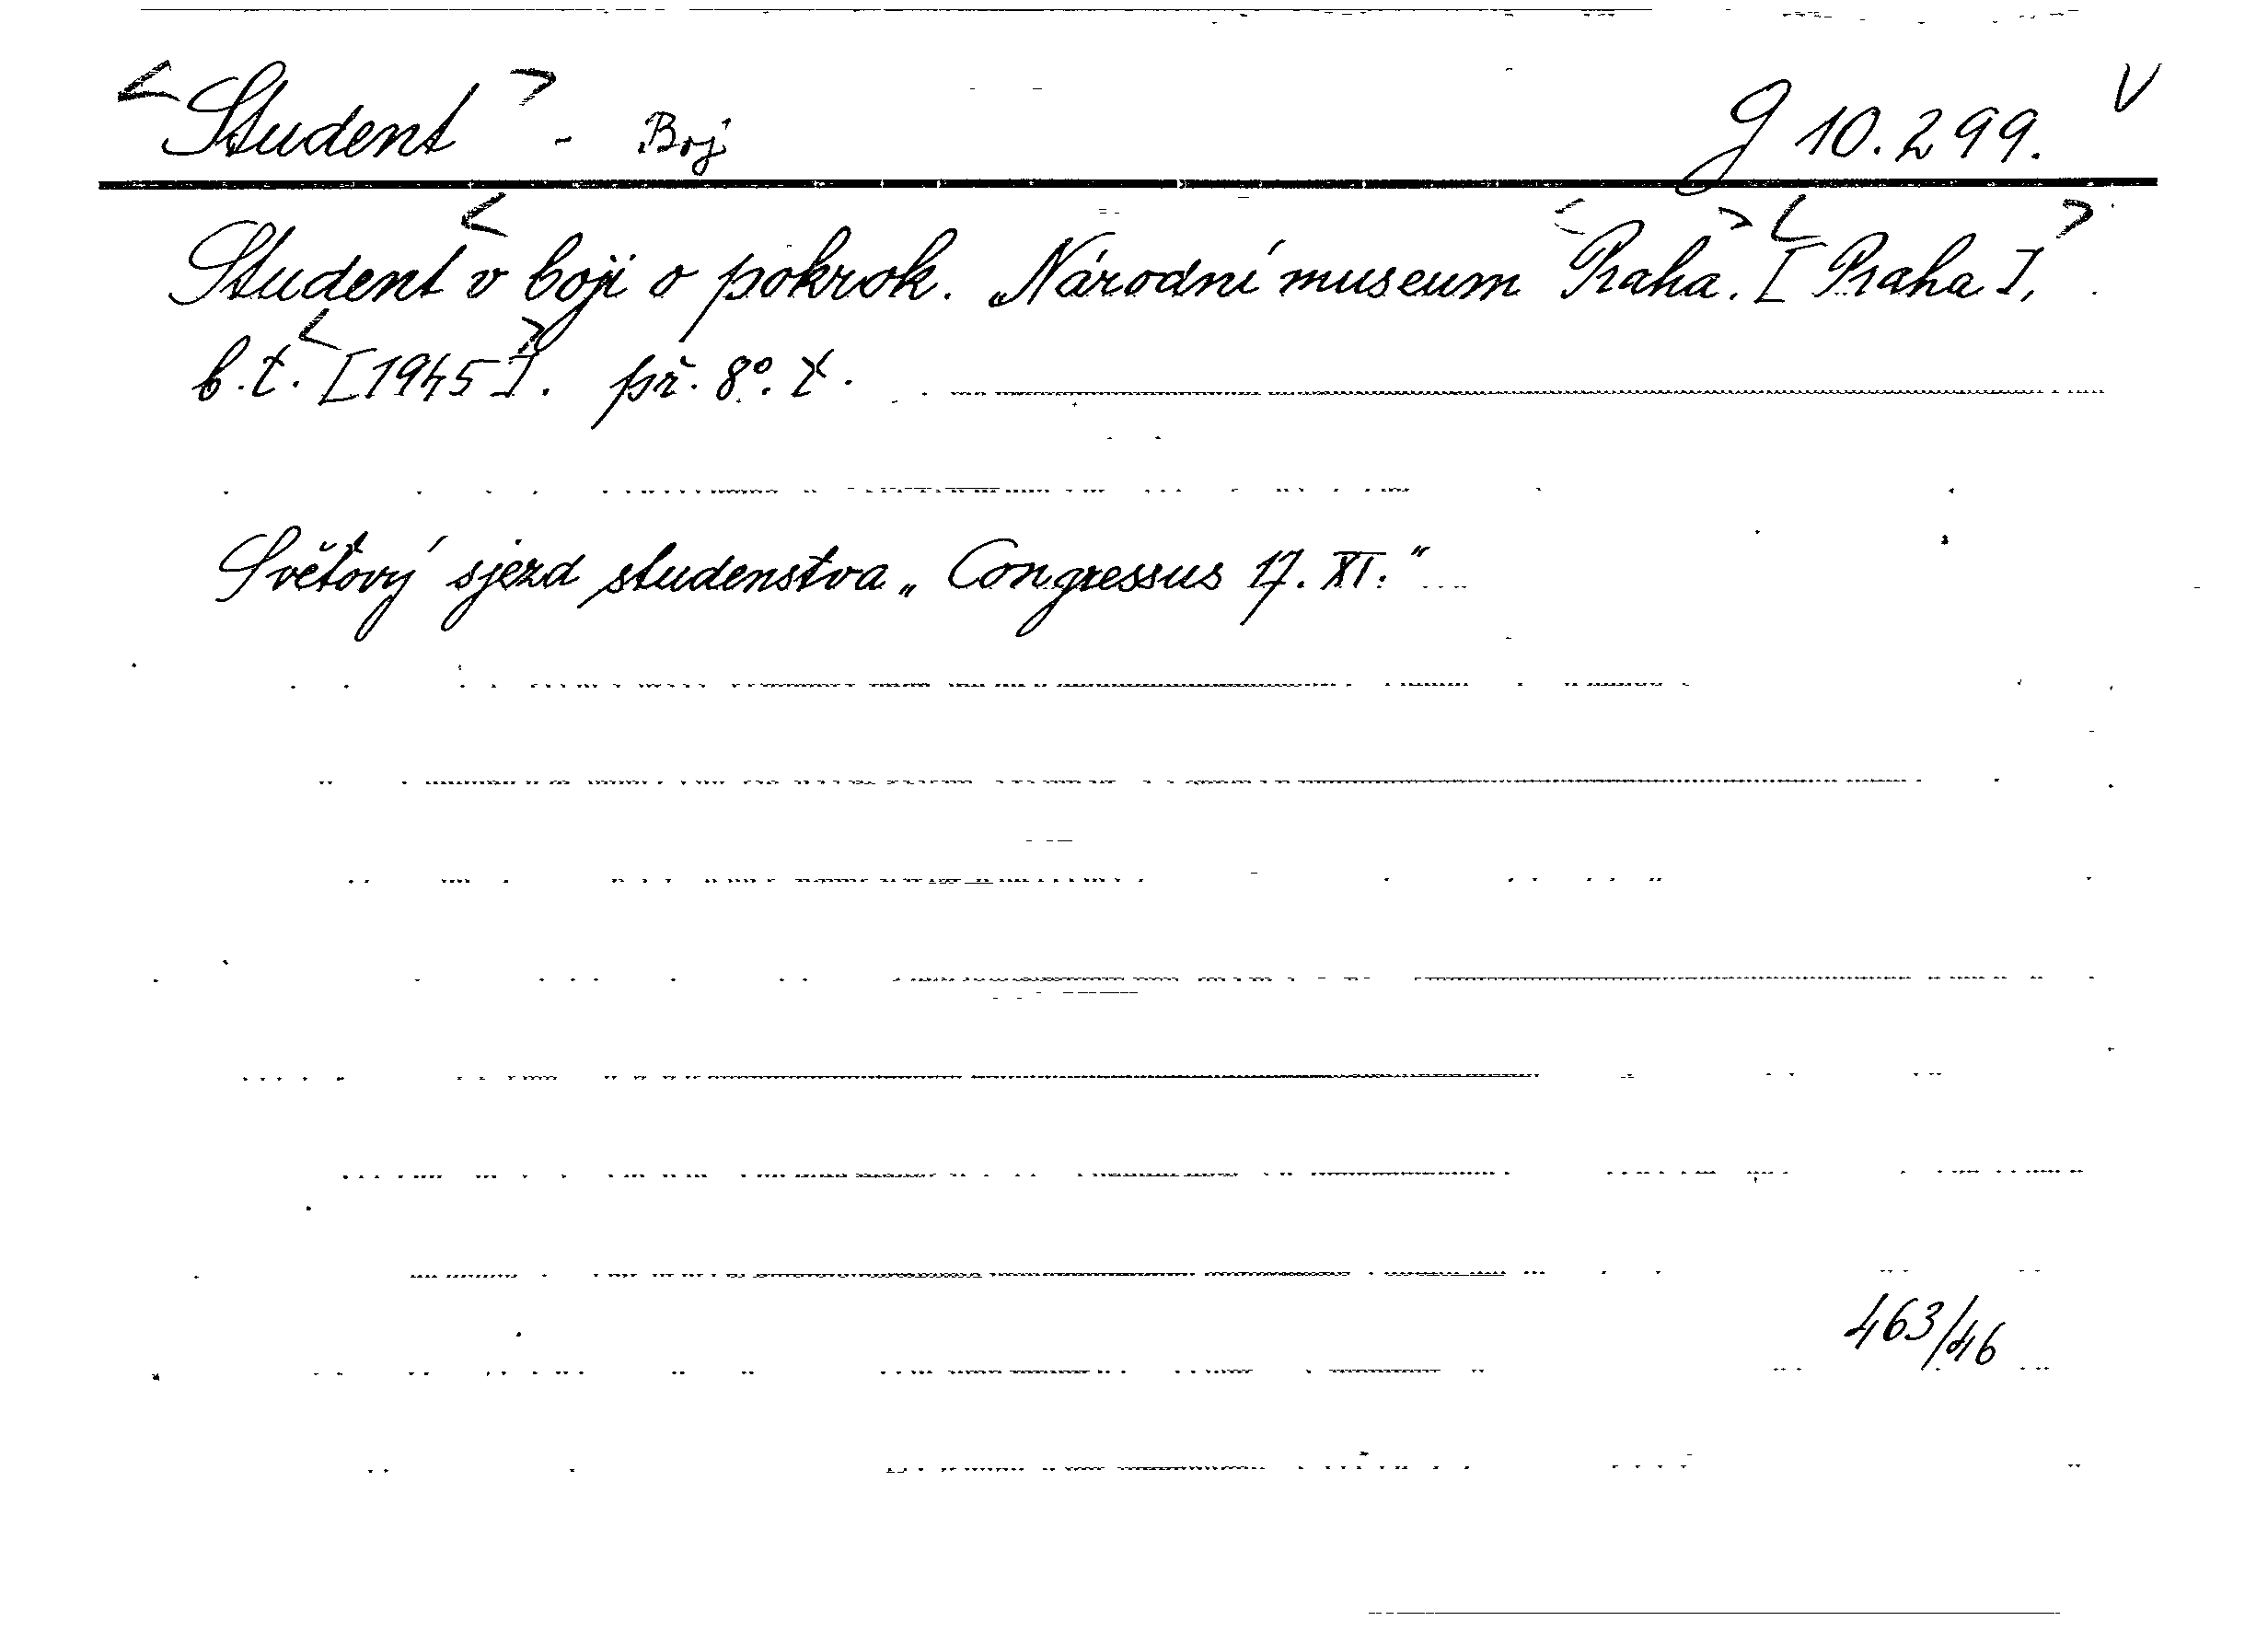 <Student> - Boj g 10.299. V
Student < v boji o pokrok. Národní museum <Praha>. <[Praha],>
b.t. <[1945]>. př. 8°. Y.
Světový sjezd studenstva „Congressus 17. XI."
463/46